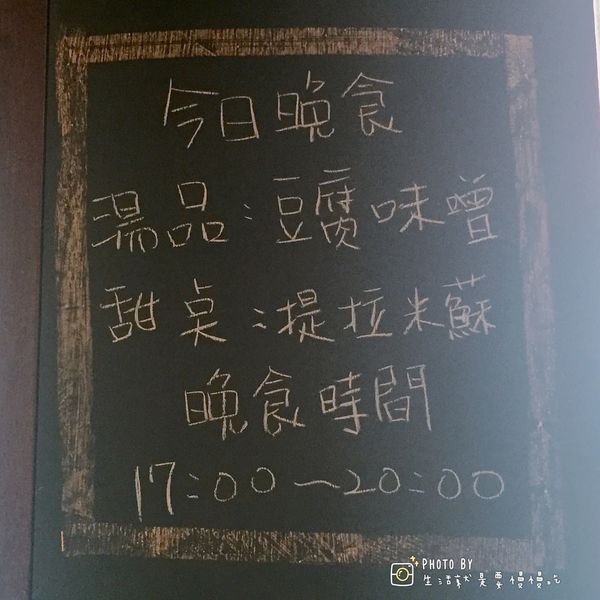 今日晚食
湯品:豆腐味噌
甜桌:提拉米蘇
晚食時間
17:00～20:00
PHOTO BY
生活就是要慢慢吃